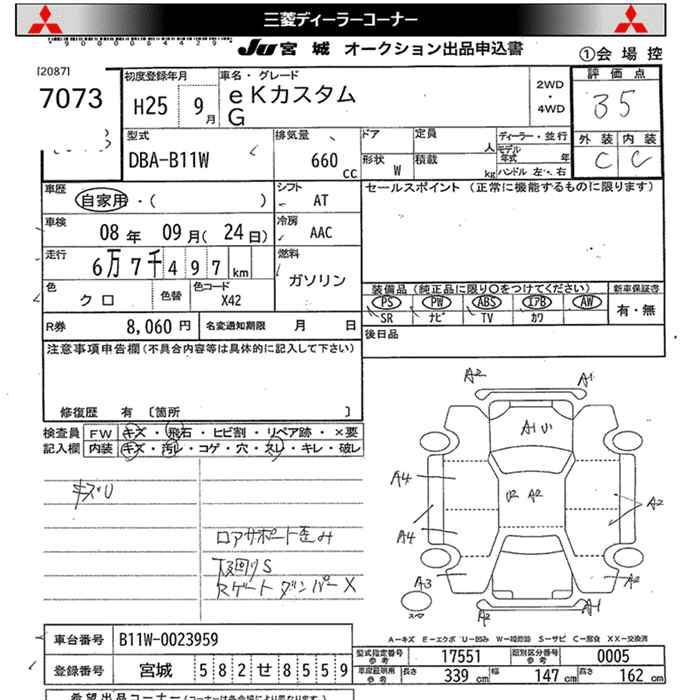 三菱ディーラーコーナー
JU 宮城 オークション出品申込書
①会場控
[2087]
7073
初度登録年月
H25 9月
車名・グレード
eKカスタム
G
2WD
・
4WD
評価点
35
外装 内装
C C
型式
DBA-B11W
排気量
660 cc
ドア 定員 人
形状 W 積載 kg
ディーラー・並行
モデル年式 年
ハンドル 左・右
車歴
自家用・( )
シフト
AT
セールスポイント (正常に機能するものに限ります)
車検
08年 09月(24日)
冷房
AAC
走行
6万7千497km
燃料
ガソリン
色
クロ
色替
色コード
X42
装備品 (純正品に限り○をつけてください)
新車保証書
PS PW ABS エアB AW
有・無
SR ナビ TV カワ
R券 8,060円 名変通知期限 月 日
後日品
注意事項申告欄 (不具合内容等は具体的に記入して下さい)
修復歴 有 [箇所 ]
検査員 FW キズ・飛石・ヒビ割・リペア跡・×要
記入欄 内装 キズ・汚レ・コゲ・穴・スレ・キレ・破レ
キズ・U
ロアサポート歪み
下回りS
Rゲートダンパー X
A2 A1
A1 U1
A4 U2 A2 A2
A4
A3 A2
A2 A1
A-キズ E-エクボ U-凹み W-補修跡 S-サビ C-腐食 XX-交換済
車台番号 B11W-0023959
登録番号 宮城 582せ8559
型式指定番号 参考 17551 類別区分番号 参考 0005
車庫証明用 参考 長さ 339cm 幅 147cm 高さ 162cm
希望出品コーナー